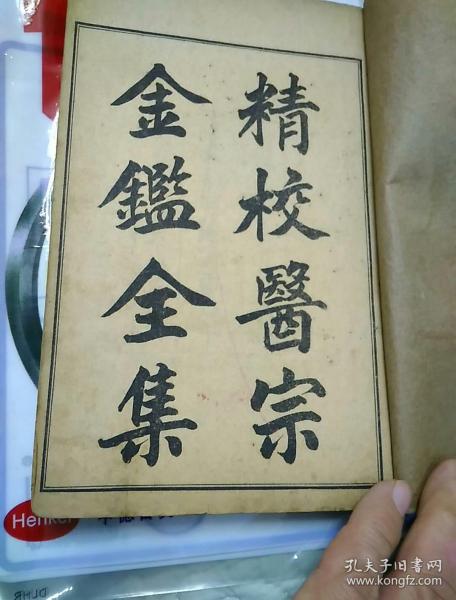 精校醫宗
金鑑全集
Henkel
孔夫子旧书网
www.kongfz.com